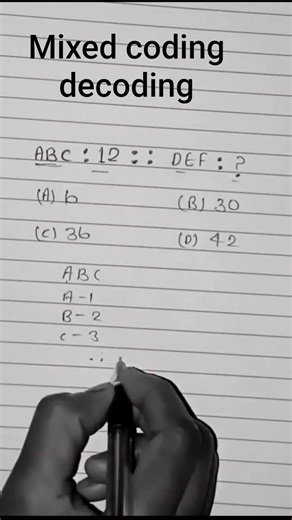 Mixed coding
decoding
ABC : 12 :: DEF : ?
(A) 6 (B) 30
(C) 36 (D) 42
ABC
A - 1
B - 2
C - 3